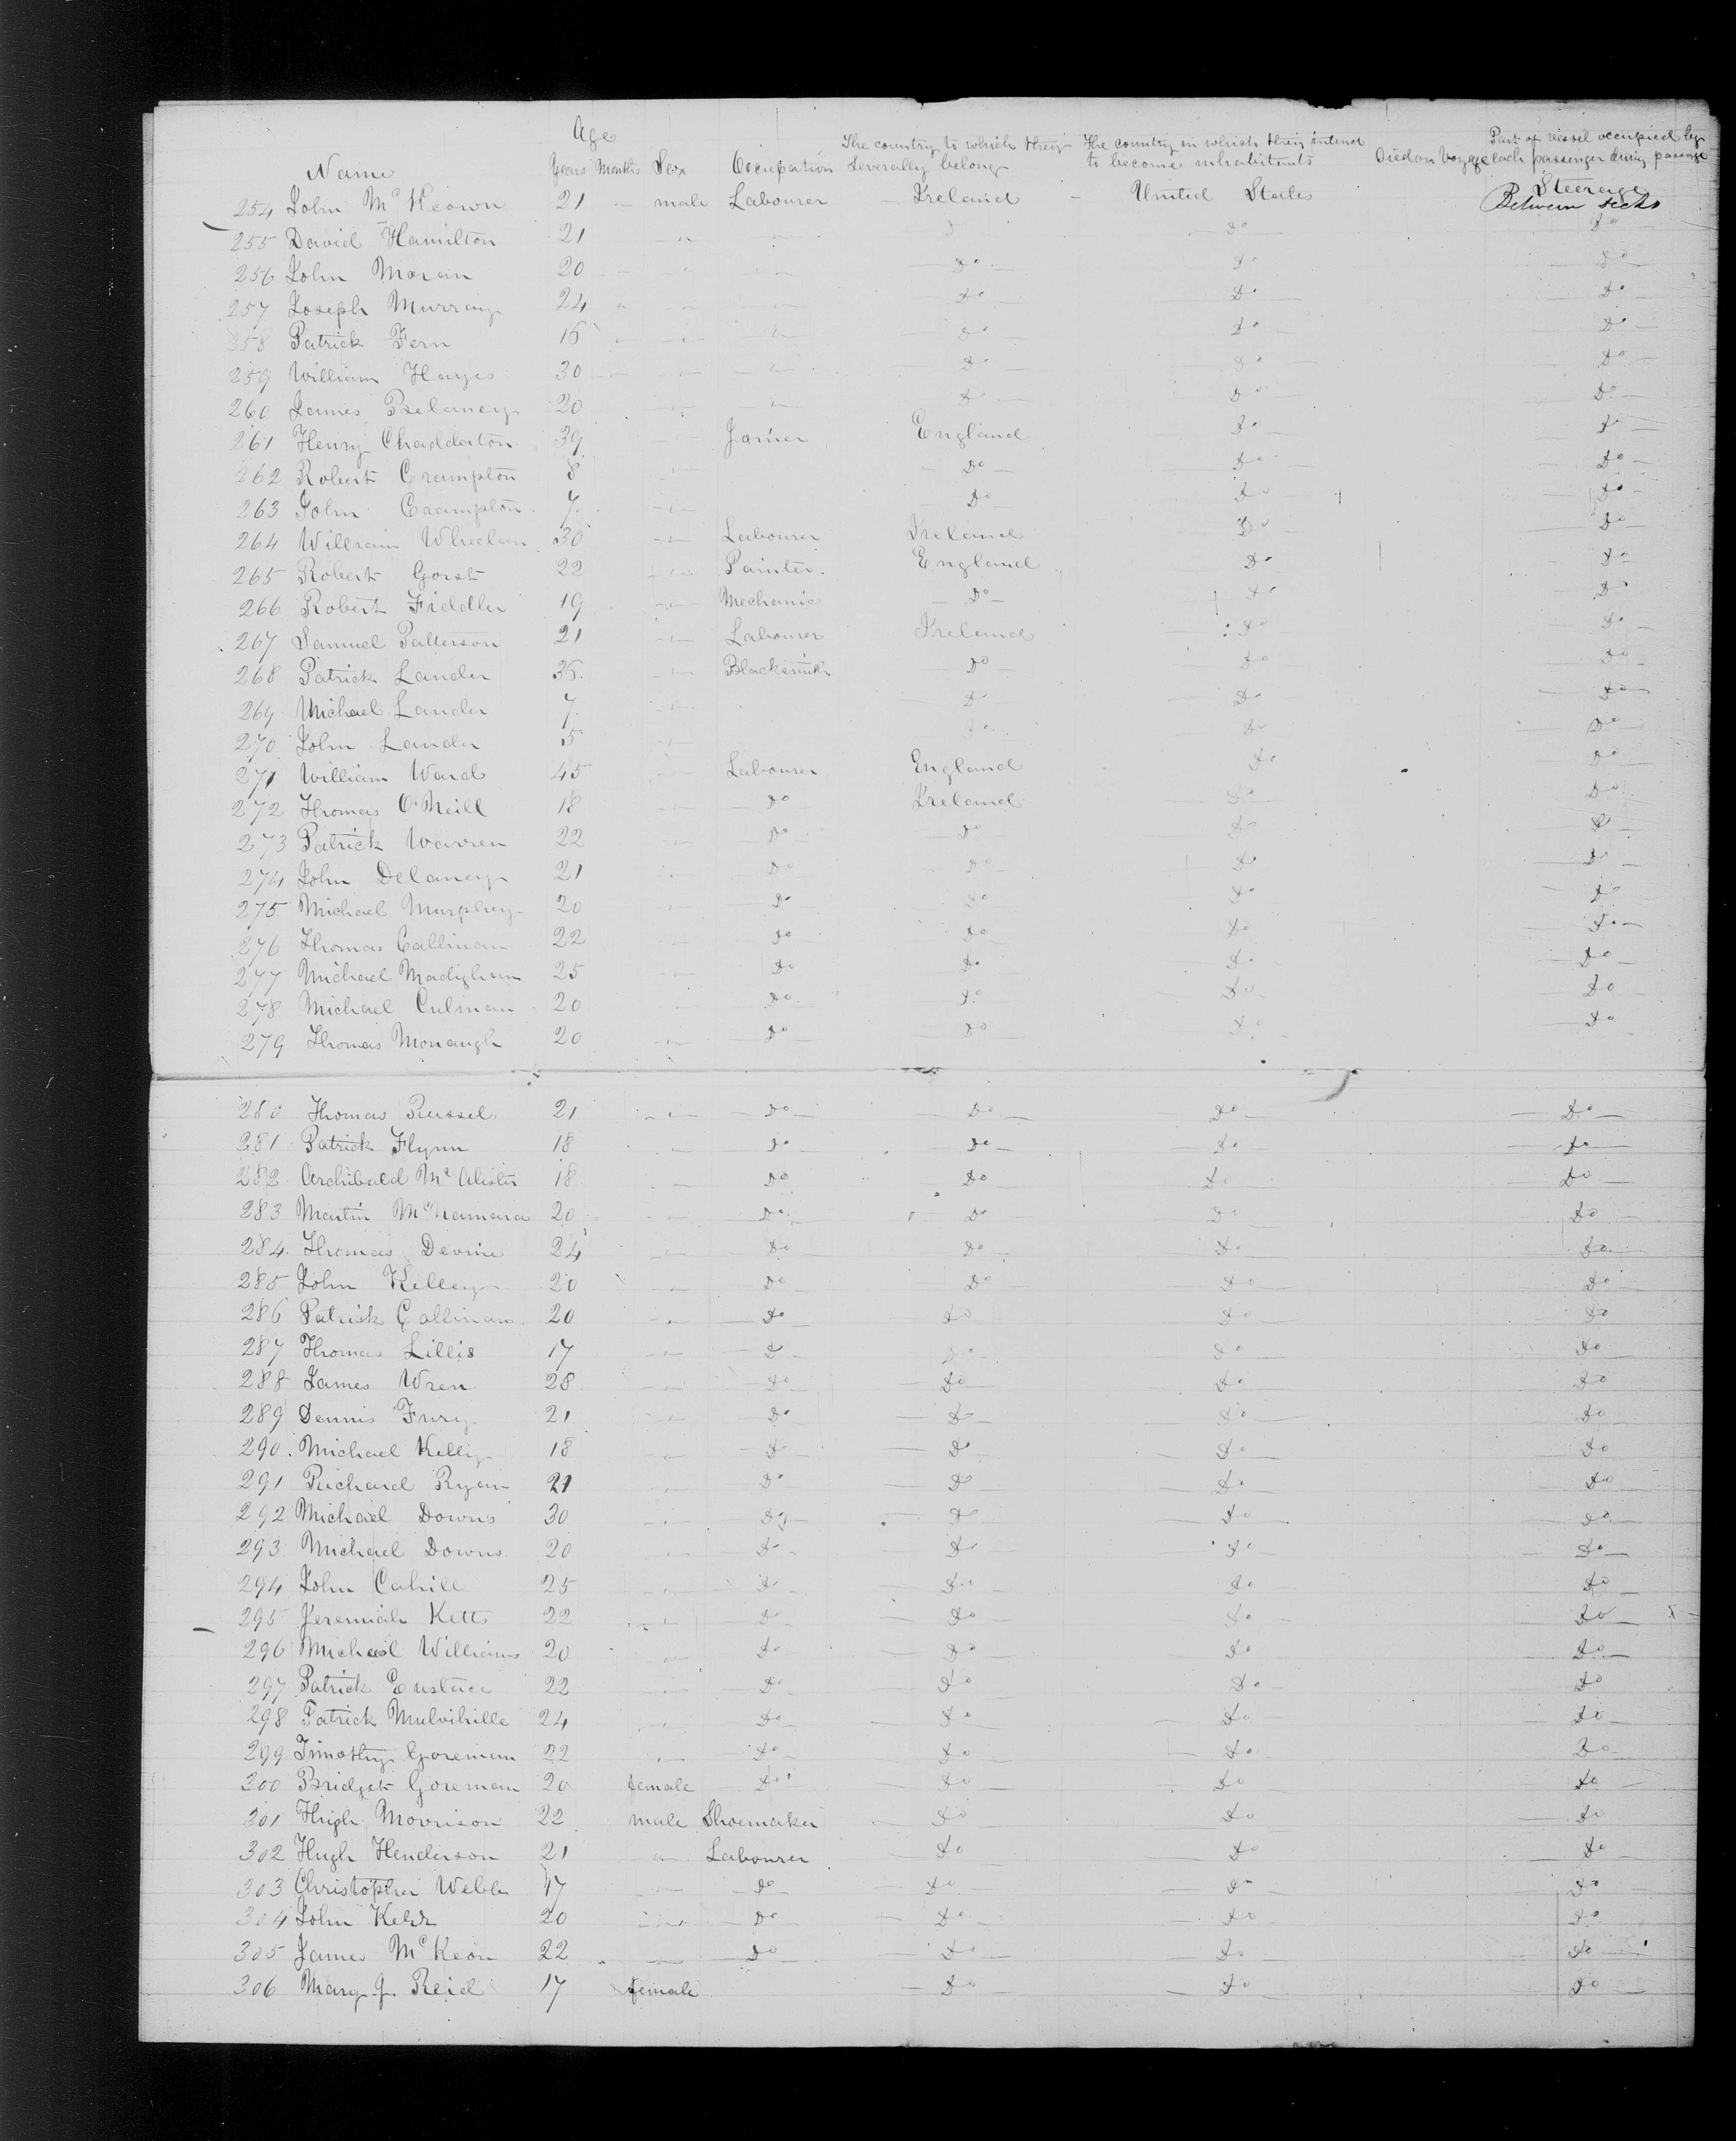 Age
The country to which they The country in which they intend Part of vessel occupied by
Name Years Months Sex Occupation Severally belong to become inhabitants Died on Voyage each passenger during passage
Steerage
254 John McKeown 21 — male Labourer — Ireland — United States Between decks
255 David Hamilton 21 " — Do — Do —
256 John Moran 20 — " — Do — Do — Do —
257 Joseph Murray 24 " — — Do — Do — Do —
258 Patrick Fern 16 — " — " — Do — Do — Do —
259 William Hayes 30 — " — " — Do — Do — Do —
260 James Delaney 20 — " — " — Do — Do — Do —
261 Henry Chaddaton 39 — Joiner England Do — Do —
262 Robert Crampton 8 — " — Do — Do — Do —
263 John Crampton 7 — " — Do — Do — Do —
264 William Wheelan 30 — " — Labourer Ireland Do — Do —
265 Robert Gorst 22 — " — Painter England Do Do
266 Robert Fiddler 19 — " — Mechanic — Do — Do Do
267 Samuel Patterson 21 — " — Labourer Ireland Do — Do —
268 Patrick Lander — " — Blacksmith Do — Do — Do —
269 Michael Lander 7 — " — Do — Do — Do —
270 John Lander 5 — " Do — Do — Do —
271 William Ward 45 Labourer England Do Do —
272 Thomas O'Neill 18 — " — Do Ireland Do — Do
273 Patrick Warren 22 — " — Do — Do — Do — Do —
274 John Delaney 21 — " — Do — Do — Do — Do —
275 Michael Murphey 20 — " — Do — Do — Do — Do
276 Thomas Callinan 22 — " — Do — Do — Do — Do —
277 Michael Madighan 25 — " — Do Do Do — Do —
278 Michael Culinan 20 — " — Do — Do — Do — Do —
279 Thomas Monaugh 20 — " — Do — Do — Do — Do
280 Thomas Russel 21 — " — Do — Do — Do — Do —
281 Patrick Flynn 18 — " — Do — Do — Do — Do —
282 Archibald McAlister 18 — " — Do — Do — Do — Do —
283 Martin McNamara 20 — " — Do — Do — Do — Do —
284 Thomas Devine 24 — " — Do — Do — Do — Do —
285 John Kelley 20 — " — Do — Do — Do — Do —
286 Patrick Callinan 20 — " — Do — Do — Do — Do
287 Thomas Lillis 17 — " — Do — Do — Do — Do
288 James Wren 28 — " — Do — Do — Do — Do
289 Dennis Fury 21 — " — Do — Do — Do — Do
290 Michael Kelly 18 — " — Do — Do — Do — Do
291 Richard Ryan 21 — " — Do — Do — Do — Do
292 Michael Downs 30 — " — Do — Do — Do — Do —
293 Michael Downs 20 — " — Do — Do — Do — Do —
294 John Cahill 25 — " — Do — Do — Do — Do
295 Jeremiah Kett 22 — " — Do — Do — Do — Do —
296 Michael Williams 20 " — Do — Do — Do — Do —
297 Patrick Eustace 22 — " — Do — Do — Do — Do
298 Patrick Mulvihille 24 " — Do — Do — Do — Do —
299 Timothy Goreman 22 " — Do — Do — Do Do —
300 Bridget Goreman 20 female — Do — Do — Do Do —
301 Hugh Morrison 22 male Shoemaker — Do — Do — Do
302 Hugh Henderson 21 " Labourer — Do — Do — Do
303 Christopher Webb 17 — " — Do — Do — Do — Do
304 John 20 — " — Do — Do — Do — Do
305 James McKeon 22 " — Do — Do — Do — Do —
306 Mary J. Reid 17 female — Do — Do — Do —